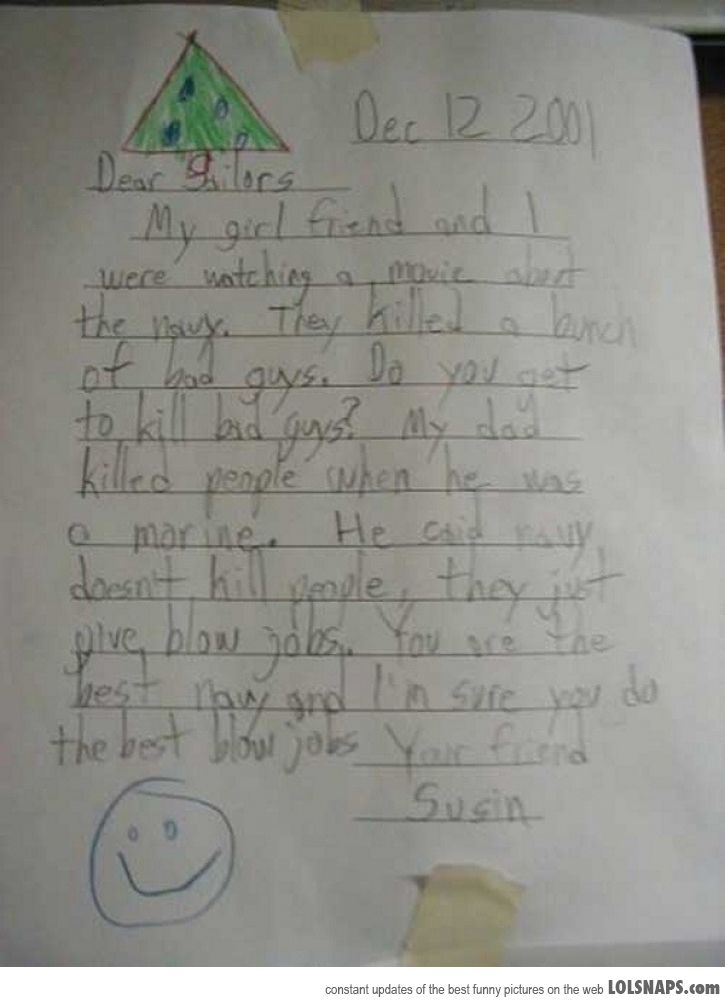 Dec 12 2001
Dear Sailors
My girl friend and I
were watching a movie about
the navy. They killed a bunch
of bad guys. Do you get
to kill bad guys? My dad
killed people when he was
a marine. He said navy
doesn't kill people, they just
give blow jobs. You are the
best navy and I'm sure you do
the best blow jobs Your friend
Susin
constant updates of the best funny pictures on the web LOLSNAPS.com